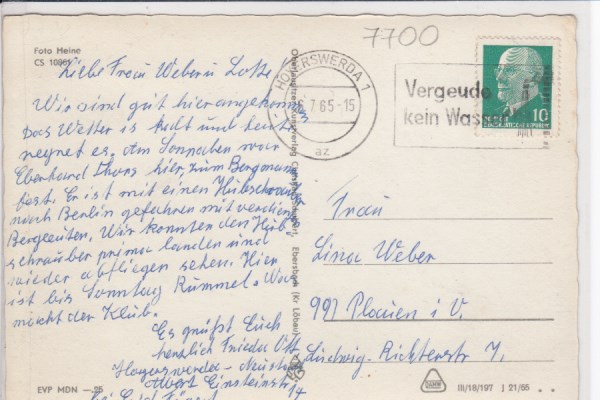 7700
Foto Heine
CS 10661
Liebe Frau Weber u. Lotte!
Wir sind gut hier angekommen
Das Wetter ist kalt und heute
regnet es. Am Sonnabend war
Eberhard Thors hier, zum Bergmanns
fest. Er ist mit einen Hubschrauber
nach Berlin gefahren mit verdienten
Bergleuten. Wir konnten den Hub
schrauber prima landen und
wieder abfliegen sehen. Hier
ist bis Sonntag Rummel. Was
macht der Klub.
Es grüßt Euch
herzlich Frieda Ott
Hoyerswerda - Neustadt
Albert Einsteinstr.
EVP MDN -,25
HOYERSWERDA 1
7.65-15
az
Vergeude
kein Wasser
10
DEUTSCHE DEMOKRATISCHE REPUBLIK
Ebersbach (Kr. Löbau)
Frau
Lina Weber
991 Plauen i. V.
Ludwig-Richterstr. 7.
DAMM
III/18/197 J 21/65